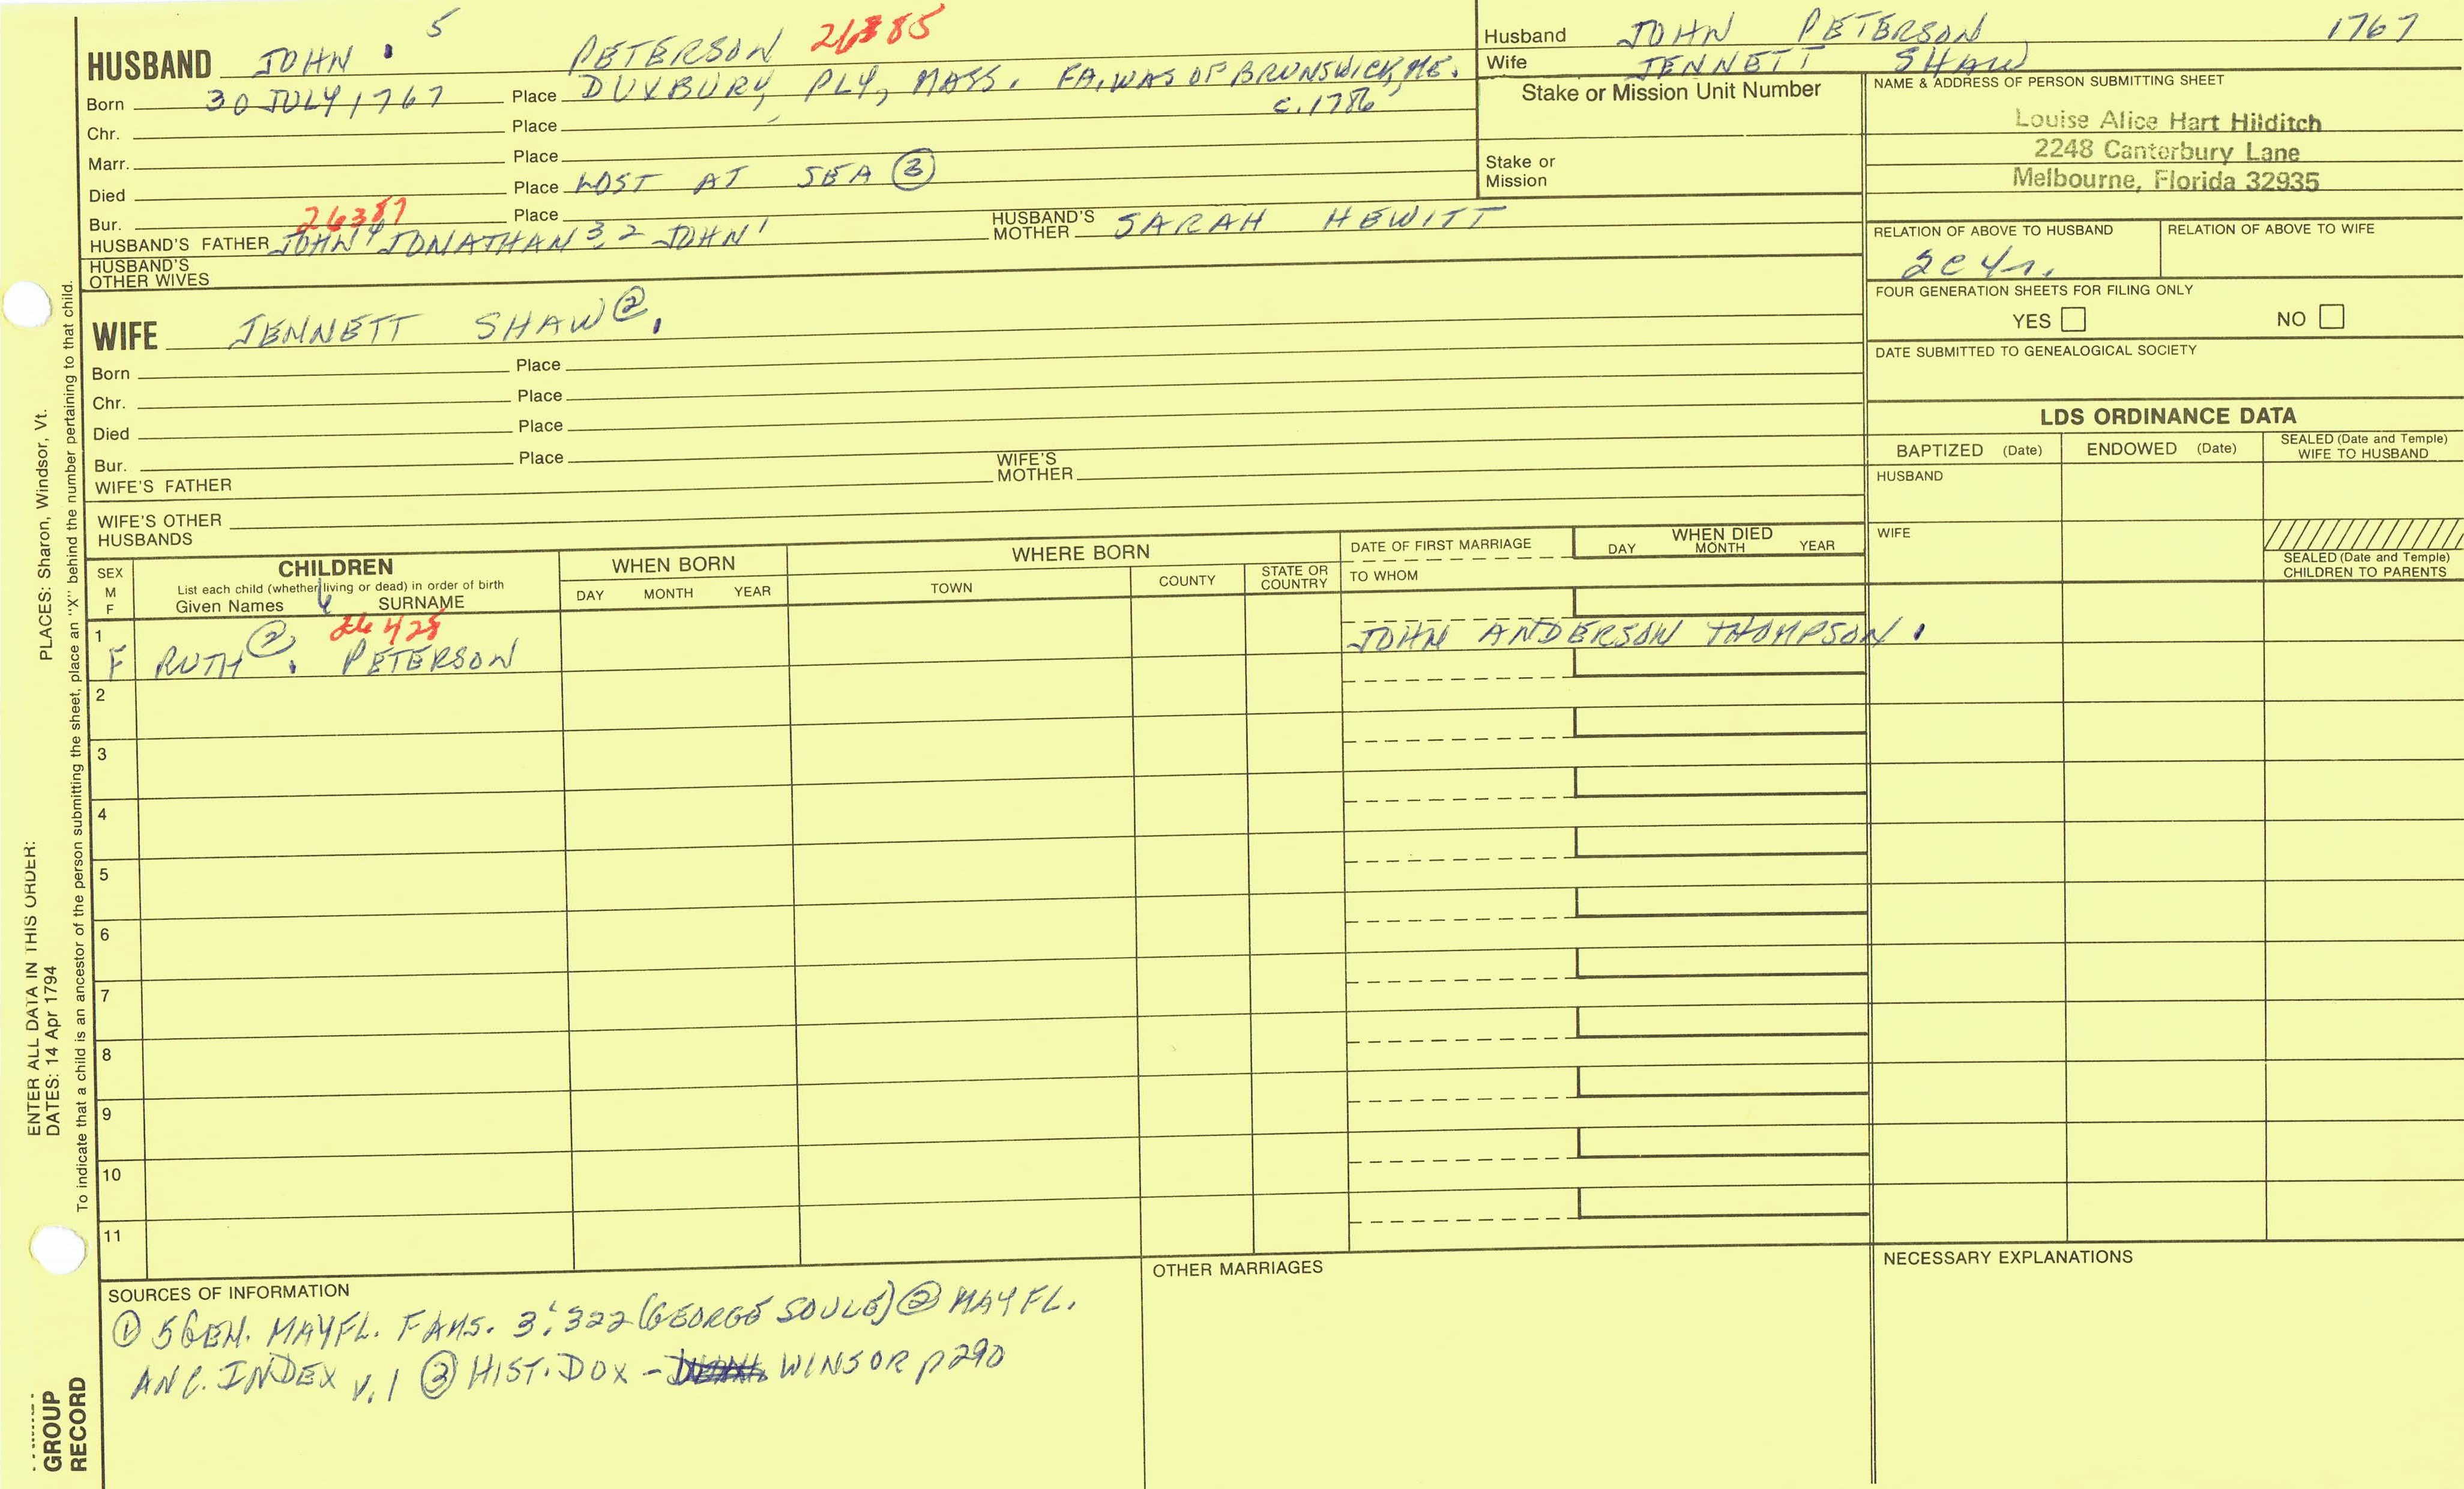 HUSBAND JOHN . 5 PETERSON 26385
Born 30 JULY 1767 Place DUXBURY, PLY, MASS. FA. WAS OF BRUNSWICK, ME. c. 1786
Chr. Place
Marr. Place
Died Place LOST AT SEA ③
Bur. Place
26387
HUSBAND'S FATHER JOHN 4 JONATHAN 3, 2 JOHN 1 HUSBAND'S MOTHER SARAH HEWITT
HUSBAND'S OTHER WIVES
WIFE JENNETT SHAW ② .
Born Place
Chr. Place
Died Place
Bur. Place
WIFE'S FATHER WIFE'S MOTHER
WIFE'S OTHER HUSBANDS
Husband JOHN PETERSON 1767
Wife JENNETT SHAW
Stake or Mission Unit Number
Stake or Mission
NAME & ADDRESS OF PERSON SUBMITTING SHEET
Louise Alice Hart Hilditch
2248 Canterbury Lane
Melbourne, Florida 32935
RELATION OF ABOVE TO HUSBAND RELATION OF ABOVE TO WIFE
FOUR GENERATION SHEETS FOR FILING ONLY
YES NO
DATE SUBMITTED TO GENEALOGICAL SOCIETY
LDS ORDINANCE DATA
BAPTIZED (Date) ENDOWED (Date) SEALED (Date and Temple) WIFE TO HUSBAND
HUSBAND
WIFE
SEALED (Date and Temple) CHILDREN TO PARENTS
SEX M F
CHILDREN
List each child (whether living or dead) in order of birth
Given Names 6 SURNAME
WHEN BORN
DAY MONTH YEAR
WHERE BORN
TOWN COUNTY STATE OR COUNTRY
DATE OF FIRST MARRIAGE
TO WHOM
WHEN DIED
DAY MONTH YEAR
26425
1 F RUTH ② . PETERSON JOHN ANDERSON THOMPSON .
2
3
4
5
6
7
8
9
10
11
SOURCES OF INFORMATION
① 5 GEN. MAYFL. FAMS. 3:322 (GEORGE SOULE) ② MAYFL.
ANC. INDEX v. 1 ③ HIST. DUX - WINSOR p 290
OTHER MARRIAGES
NECESSARY EXPLANATIONS
PLACES: Sharon, Windsor, Vt.
ENTER ALL DATA IN THIS ORDER:
DATES: 14 Apr 1794
To indicate that a child is an ancestor of the person submitting the sheet, place an "X" behind the number pertaining to that child.
GROUP
RECORD